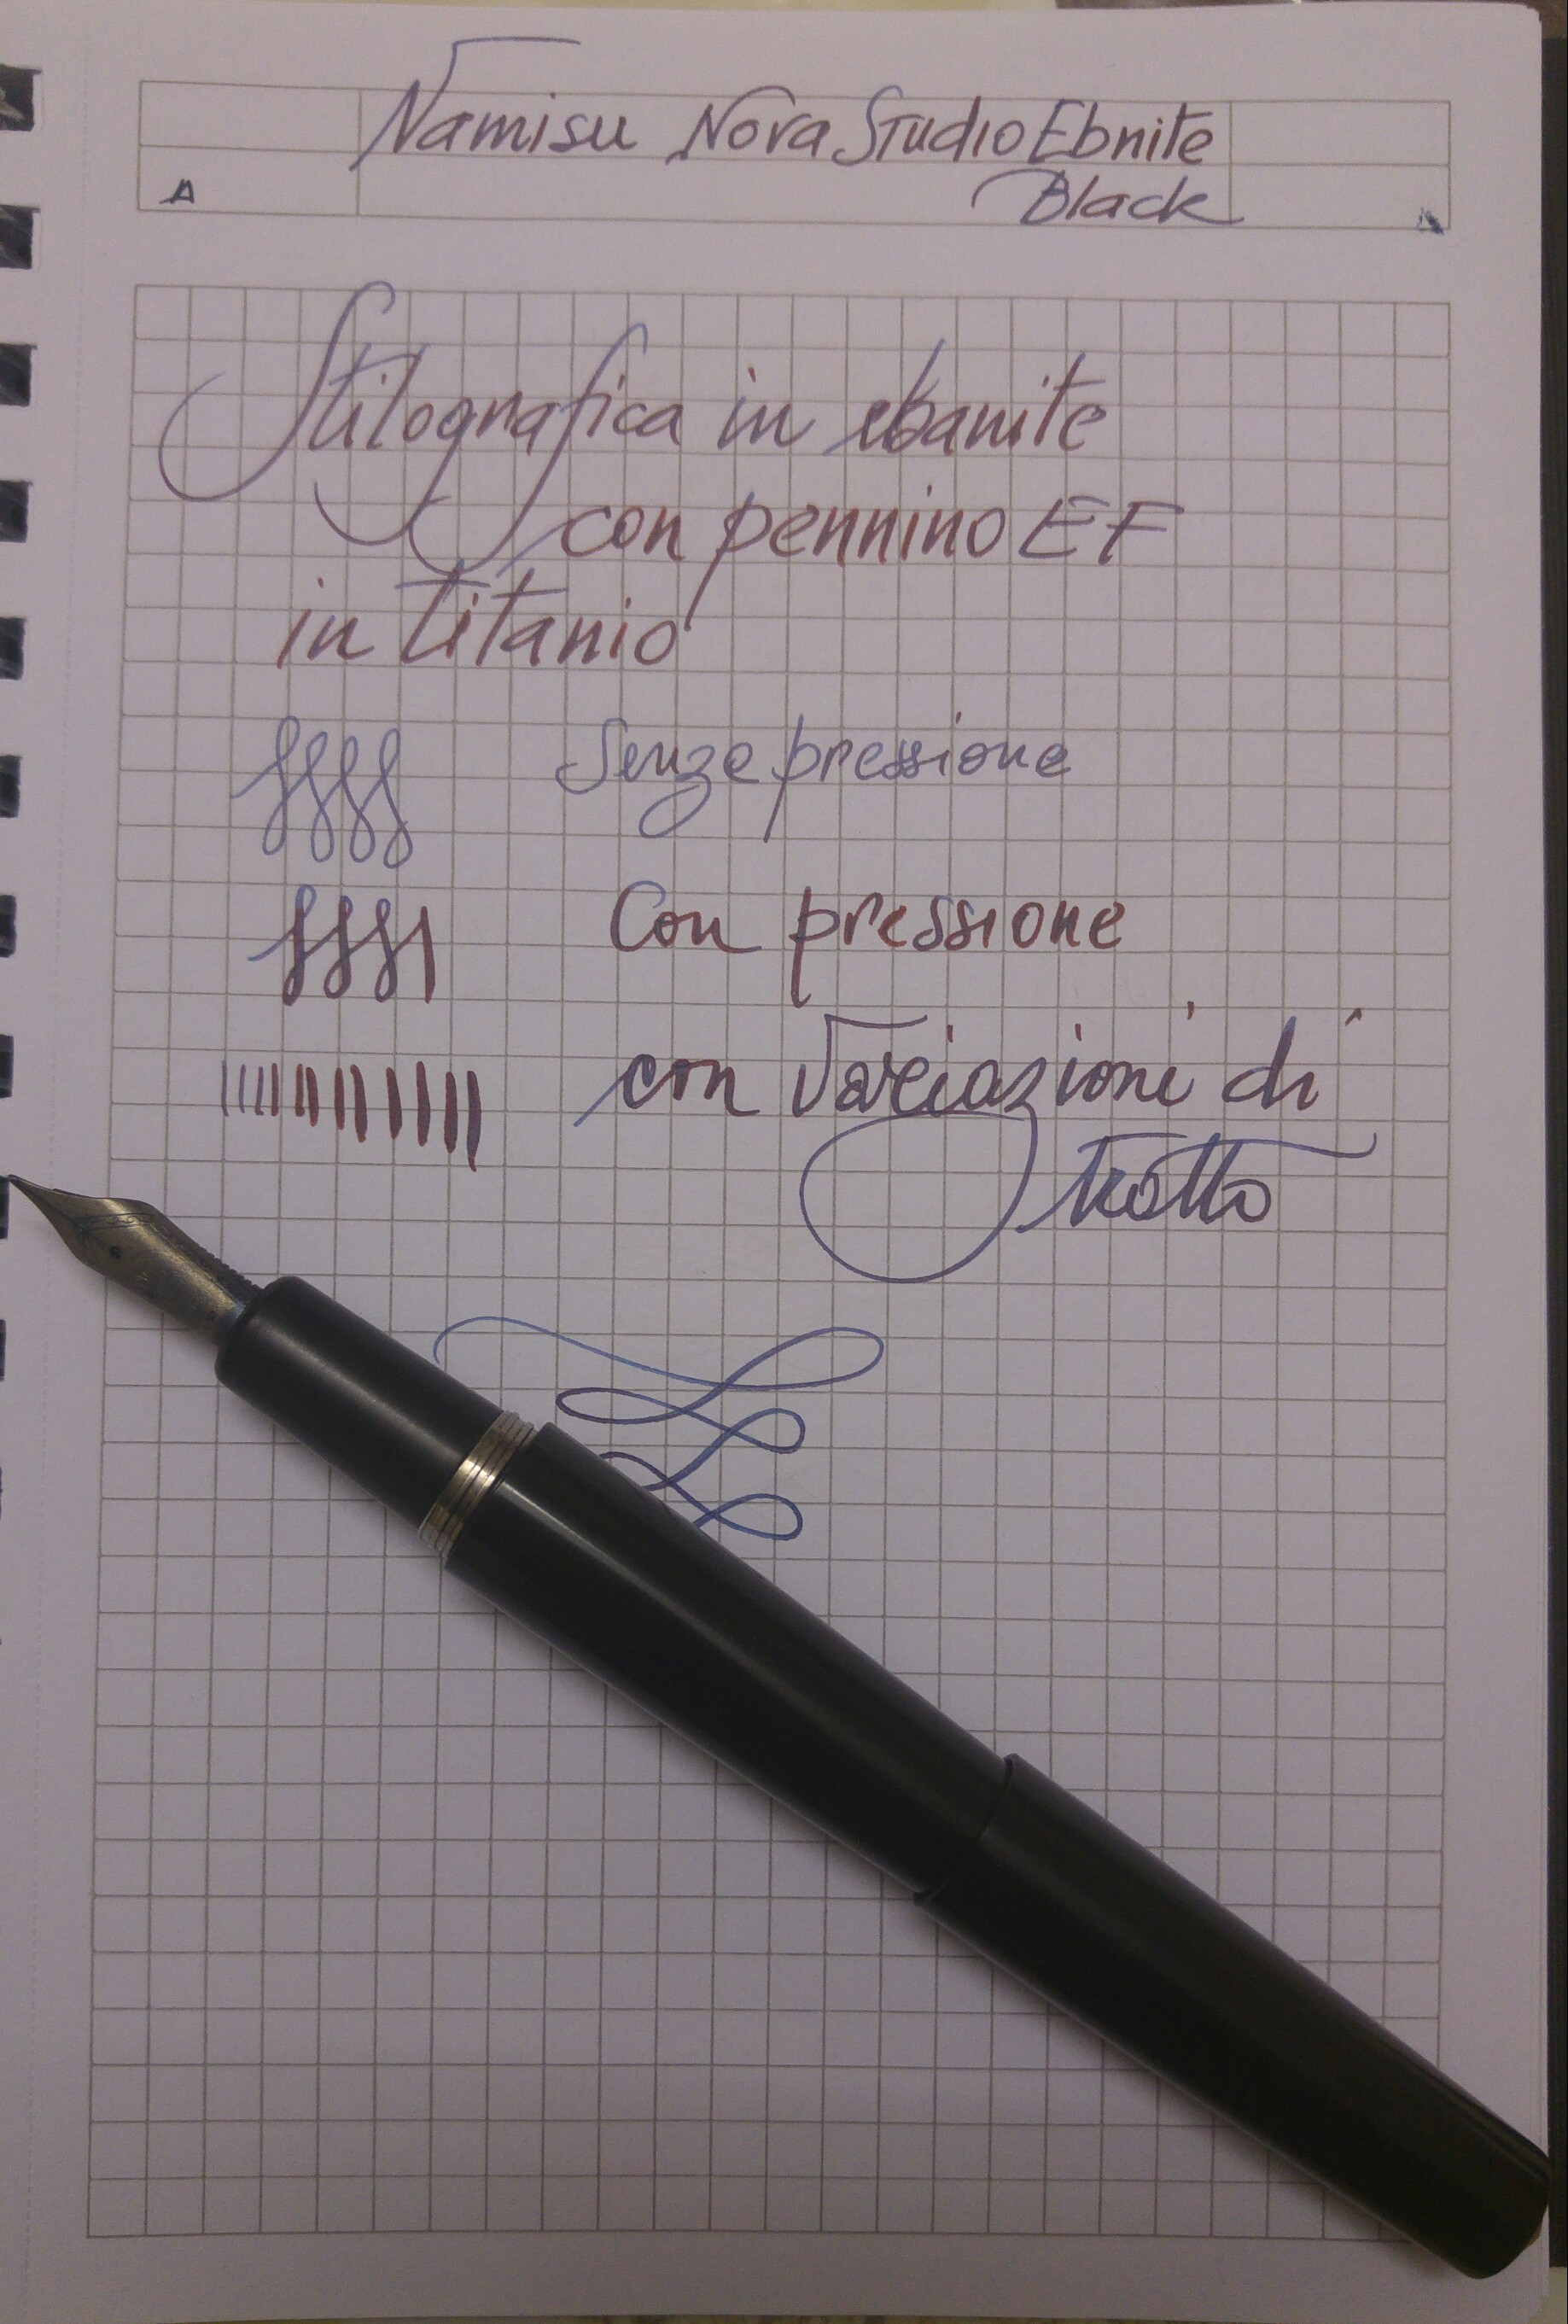 Namisu Nova Studio Ebnite
Black
A
Stilografica in ebanite
con pennino EF
in titanio
Senza pressione
Con pressione
con variazioni di
tratto